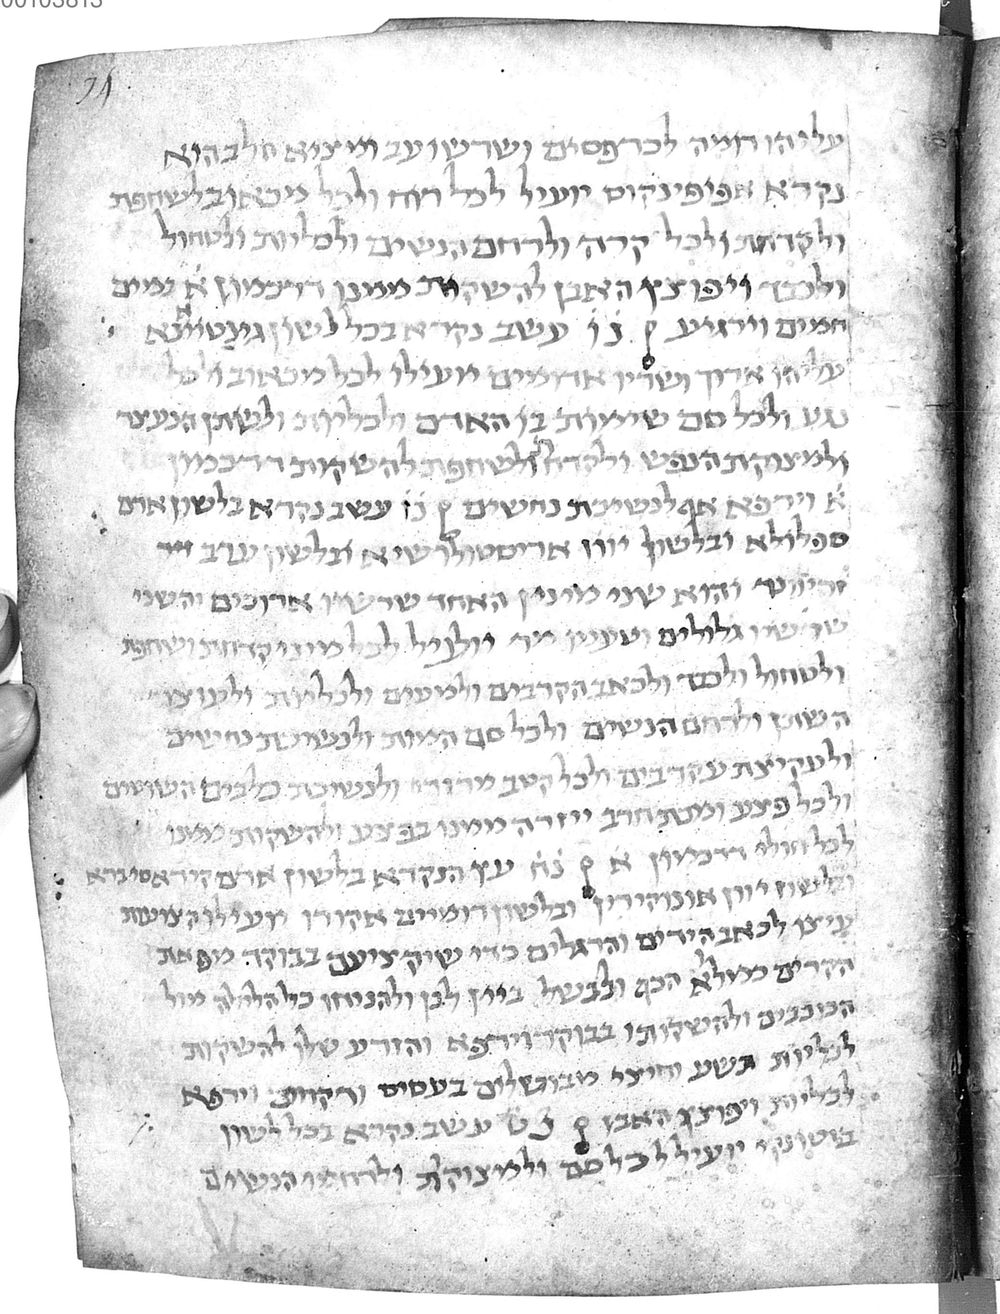 00103813
94
עליהו דומה לכרפסים ושרשו עב וימצא חלב הוא
נקרא אפופינקוס יועיל לכל רוח ולכל מיכאוב לשחפת
ולקדחת ולכל קרה ולרחם הנשים ולכליות ולטחול
ולכבד ויפוצץ האבן להשקות ממנו דרכמון א במים
חמים וירגיע נו עשב נקרא בכל לשון גינטיינא
עליהו ארוך ושריו אדומים יועילו לכל מכאוב ולכל
נגע ולכל סם שימות בו האדם ולכליות ולשתן הנעצר
ולמצוקת הנפש ולקדח ולשחפת להשקות דרכמון
א וירפא אף לנשיכת נחשים נז עשב נקרא בלשון ארם
ספלולא ובלשון יוון אריסטולושיא ובלשון ערב
והוא שני מינין האחד שרשיו ארוכים והשני
שרשיו גלולים וטעמו מר יועיל לכל מיני קדחת ושחפת
ולטחול ולכבד ולכאב הקרבים ולמעים ולכליות ולעוצר
השתן ולרחם הנשים ולכל סם המות ולנשיכת נחשים
ולעקיצת עקרבים ולכל קטב מרורי ולנשיכת כלבים השוטים
ולכל פצע ומכת חרב יזרה ממנו בפצע ולהשקות ממנו
לכל חולי דרכמון א נח עץ הנקרא בלשון ארם
ובלשון יוון ובלשון רומיים אקורו יועילו
עיצו לכאב הידים והרגלים כדי בבוקר
הקרים ממולא הכף ולבשל ביין לבן ולהניחו כל הלילה מול
הכוכבים ולהשקותו בבוקר וירפא והזרע שלו להשקות
לכליות תשע וחיצי מבושלים בעסיס וירפא
לכליות ויפוצץ האבן נט עשב נקרא בכל לשון
בטוניקי יועיל לכל סם ולמצוקת ולרחם הנשים